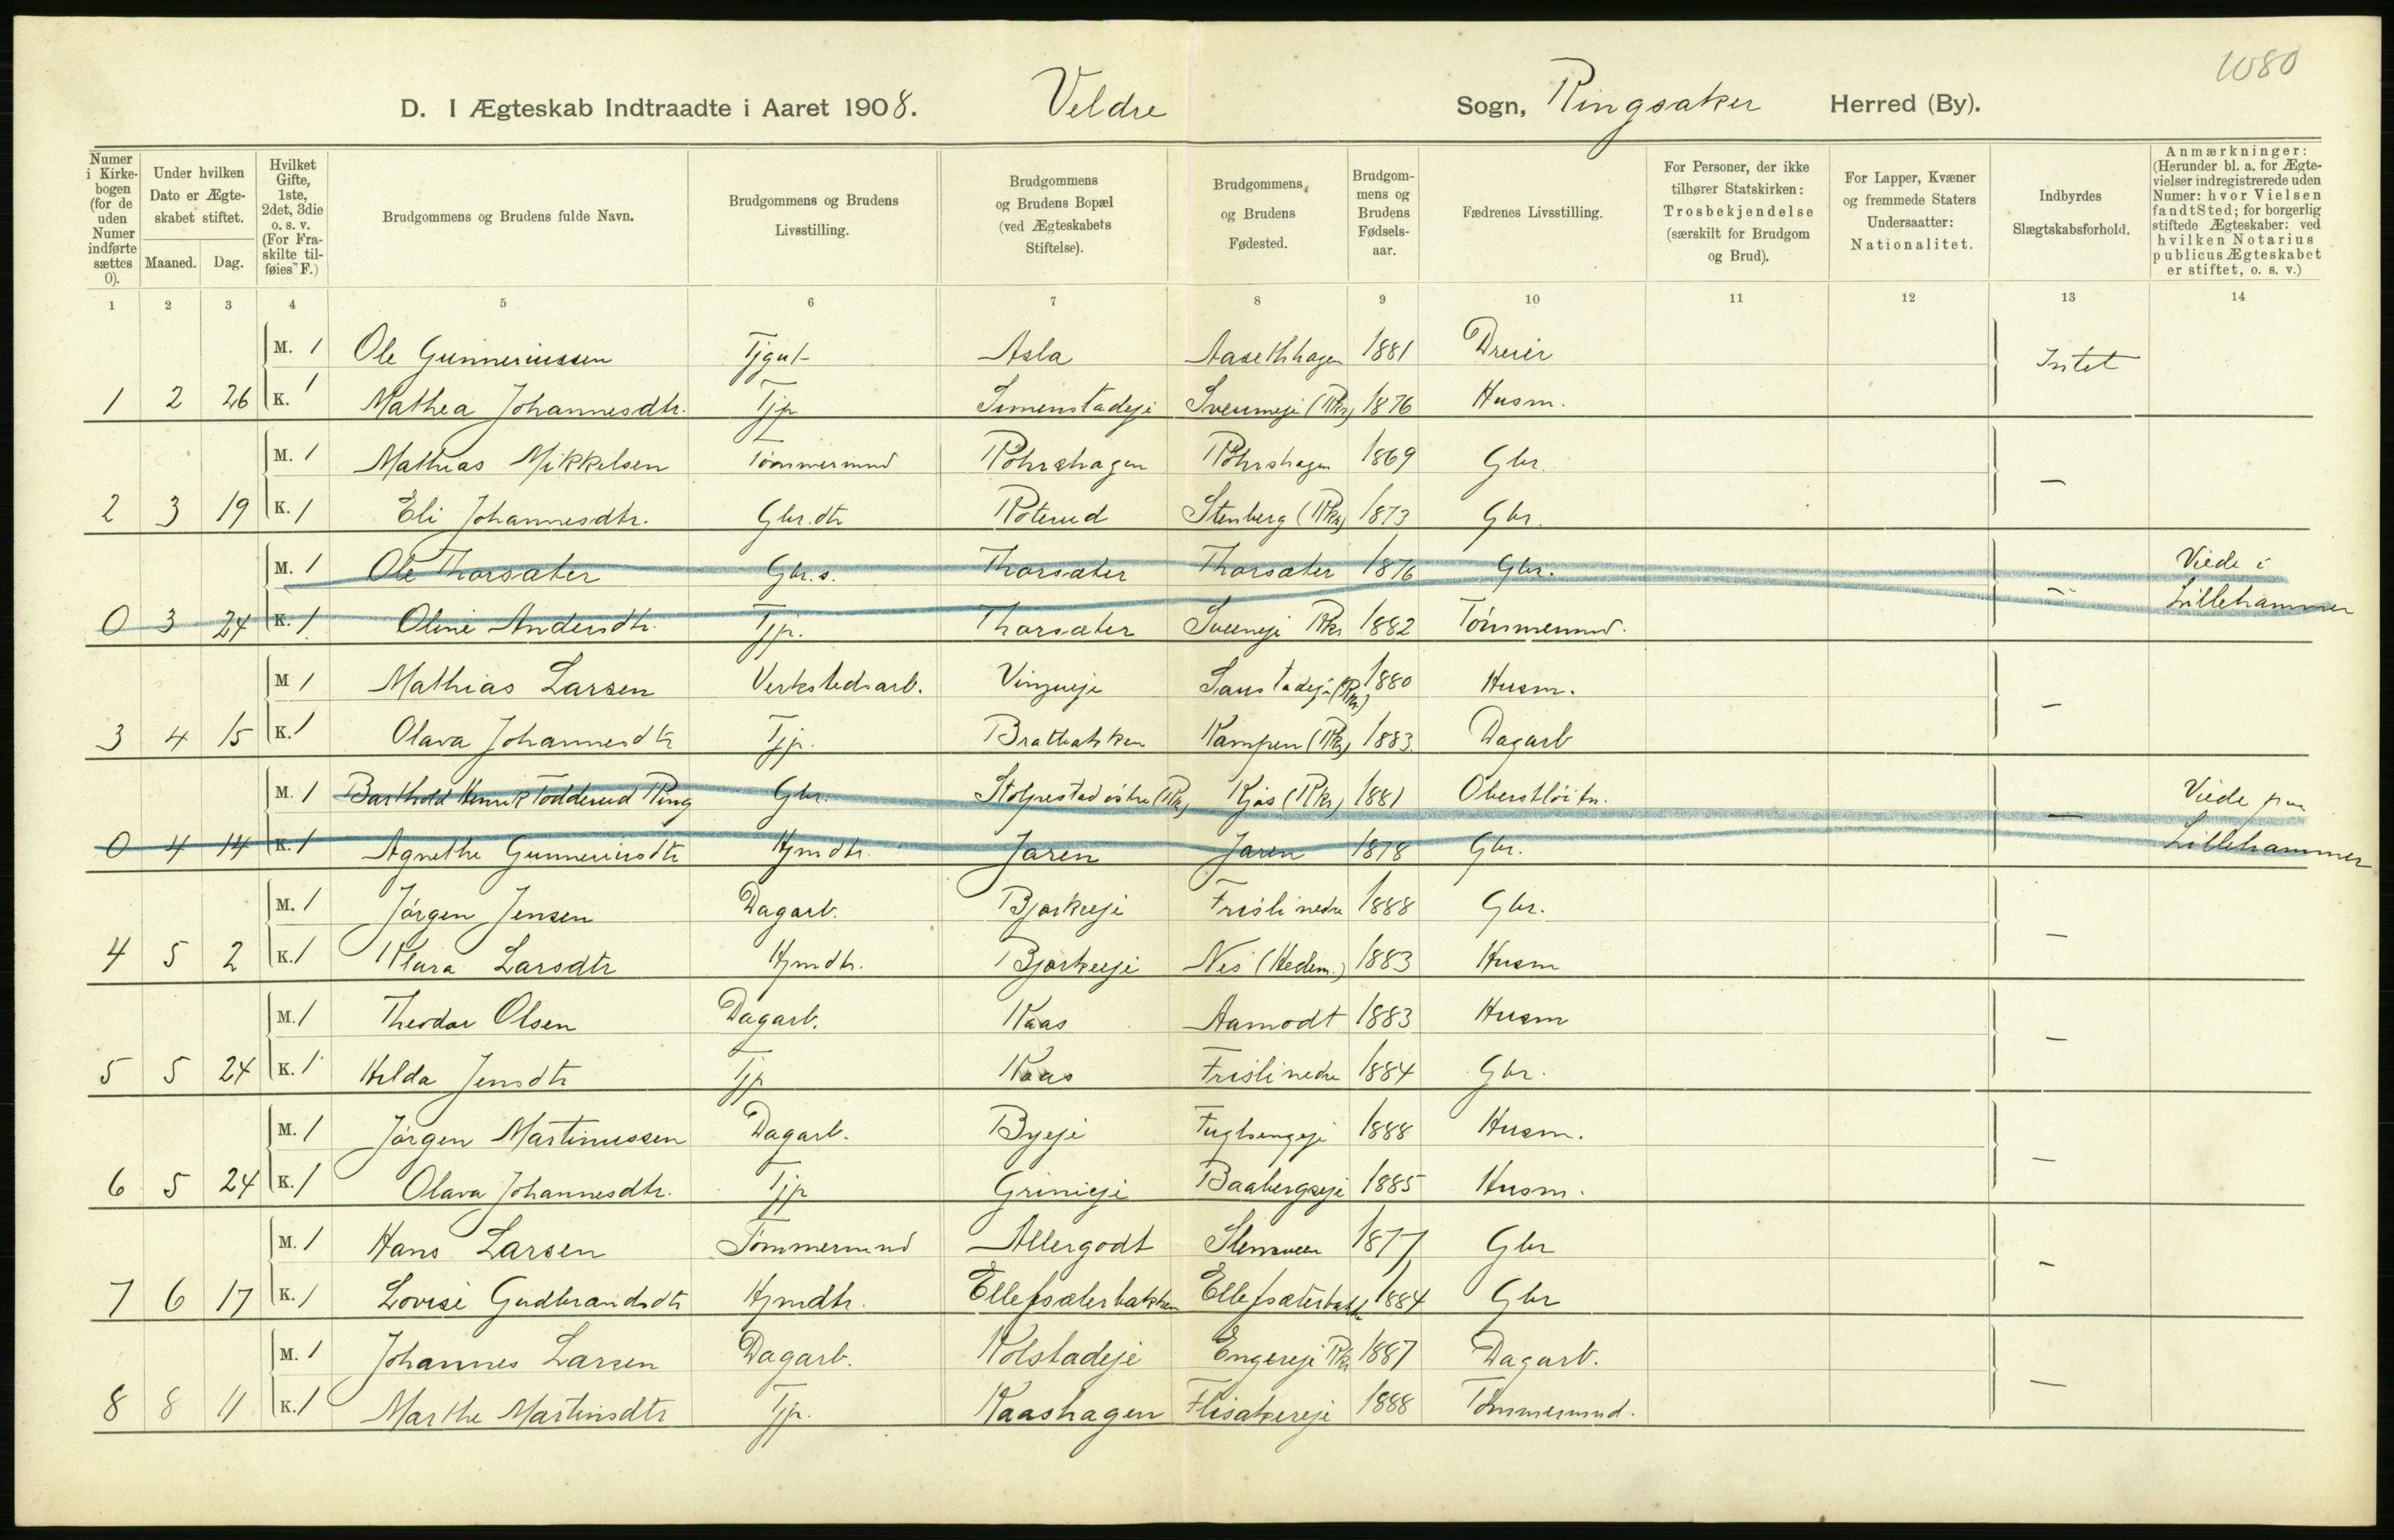 1080
D. I Ægteskab Indtraadte i Aaret 1908. Veldre Sogn, Ringsaker Herred (By).
Numer i Kirkebogen (for de uden Numer indførte sættes 0).
Under hvilken Dato er Ægteskabet stiftet.
Maaned. Dag.
Hvilket Gifte, 1ste, 2det, 3die o. s. v. (For Fraskilte tilføies F.)
Brudgommens og Brudens fulde Navn.
Brudgommens og Brudens Livsstilling.
Brudgommens og Brudens Bopæl (ved Ægteskabets Stiftelse).
Brudgommens og Brudens Fødested.
Brudgommens og Brudens Fødselsaar.
Fædrenes Livsstilling.
For Personer, der ikke tilhører Statskirken: Trosbekjendelse (særskilt for Brudgom og Brud).
For Lapper, Kvæner og fremmede Staters Undersaatter: Nationalitet.
Indbyrdes Slægtskabsforhold.
Anmærkninger: (Herunder bl. a. for Ægtevielser indregistrerede uden Numer: hvor Vielsen fandt Sted; for borgerlig stiftede Ægteskaber: ved hvilken Notarius publicus Ægteskabet er stiftet, o. s. v.)
1 2 3 4 5 6 7 8 9 10 11 12 13 14
M. 1 Ole Gunneriussen Tjgut Asla Aasethhagen 1881 Dreier Intet
1 2 26 K. 1 Mathea Johannesdtr. Tjp Simenstadeje Sveumeje (Rkr) 1876 Husm.
M. 1 Mathias Mikkelsen Tømmermnd Röhrshagen Röhrshagen 1869 Gbr. —
2 3 19 K. 1 Eli Johannesdtr. Gbr.dtr Roterud Stenberg (Rkr) 1873 Gbr.
M. 1 Ole Thorsæter Gbr.s. Thorsæter Thorsæter 1876 Gbr. — Viede i
0 3 24 K. 1 Oline Andersdtr. Tjp. Thorsæter Sveeneje Rkr 1882 Tømmermnd. Lillehammer
M 1 Mathias Larsen Verkstedsarb. Vinjueje (Rkr) 1880 Husm. —
3 4 15 K. 1 Olava Johannesdtr Tjp. Bratbakken Kampen (Rkr) 1883. Dagarb
M. 1 Barthold Henrik Todderud Ring Gbr. Stolpestad østre (Rkr) Kjøs (Rkr) 1881 Oberstløitn. — Viede paa
0 4 14 K. 1 Agnethe Gunneriusdtr Hjmdtr. Jaren Jaren 1878 Gbr. Lillehammer
M. 1 Jørgen Jensen Dagarb. Bjørkeeje Frisli nedre 1888 Gbr. —
4 5 2 K. 1 Klara Larsdtr Hjmdtr. Bjørkeeje Nes (Hedem.) 1883 Husm
M. 1 Theodor Olsen Dagarb. Kaas Aamodt 1883 Husm —
5 5 24 K. 1 Hilda Jensdtr Tjp Kaas Frisli nedre 1884 Gbr.
M. 1 Jørgen Martinussen Dagarb. Byeje Fuglsengeje 1888 Husm. —
6 5 24 K. 1 Olava Johannesdtr. Tjp Grinieje Baabergseje 1885 Husm.
M. 1 Hans Larsen Tømmermnd Allergodt 1877 Gbr —
7 6 17 K. 1 Lovise Gudbrandsdtr Hjmdtr. Ellefsæterbakken Ellefsæterbakke 1884 Gbr
M. 1 Johannes Larsen Dagarb. Kolstadeje Engereje Rkr 1887 Dagarb. —
8 8 11 K. 1 Marthe Martinsdtr Tjp. Kaashagen Flisakereje 1888 Tømmermnd.